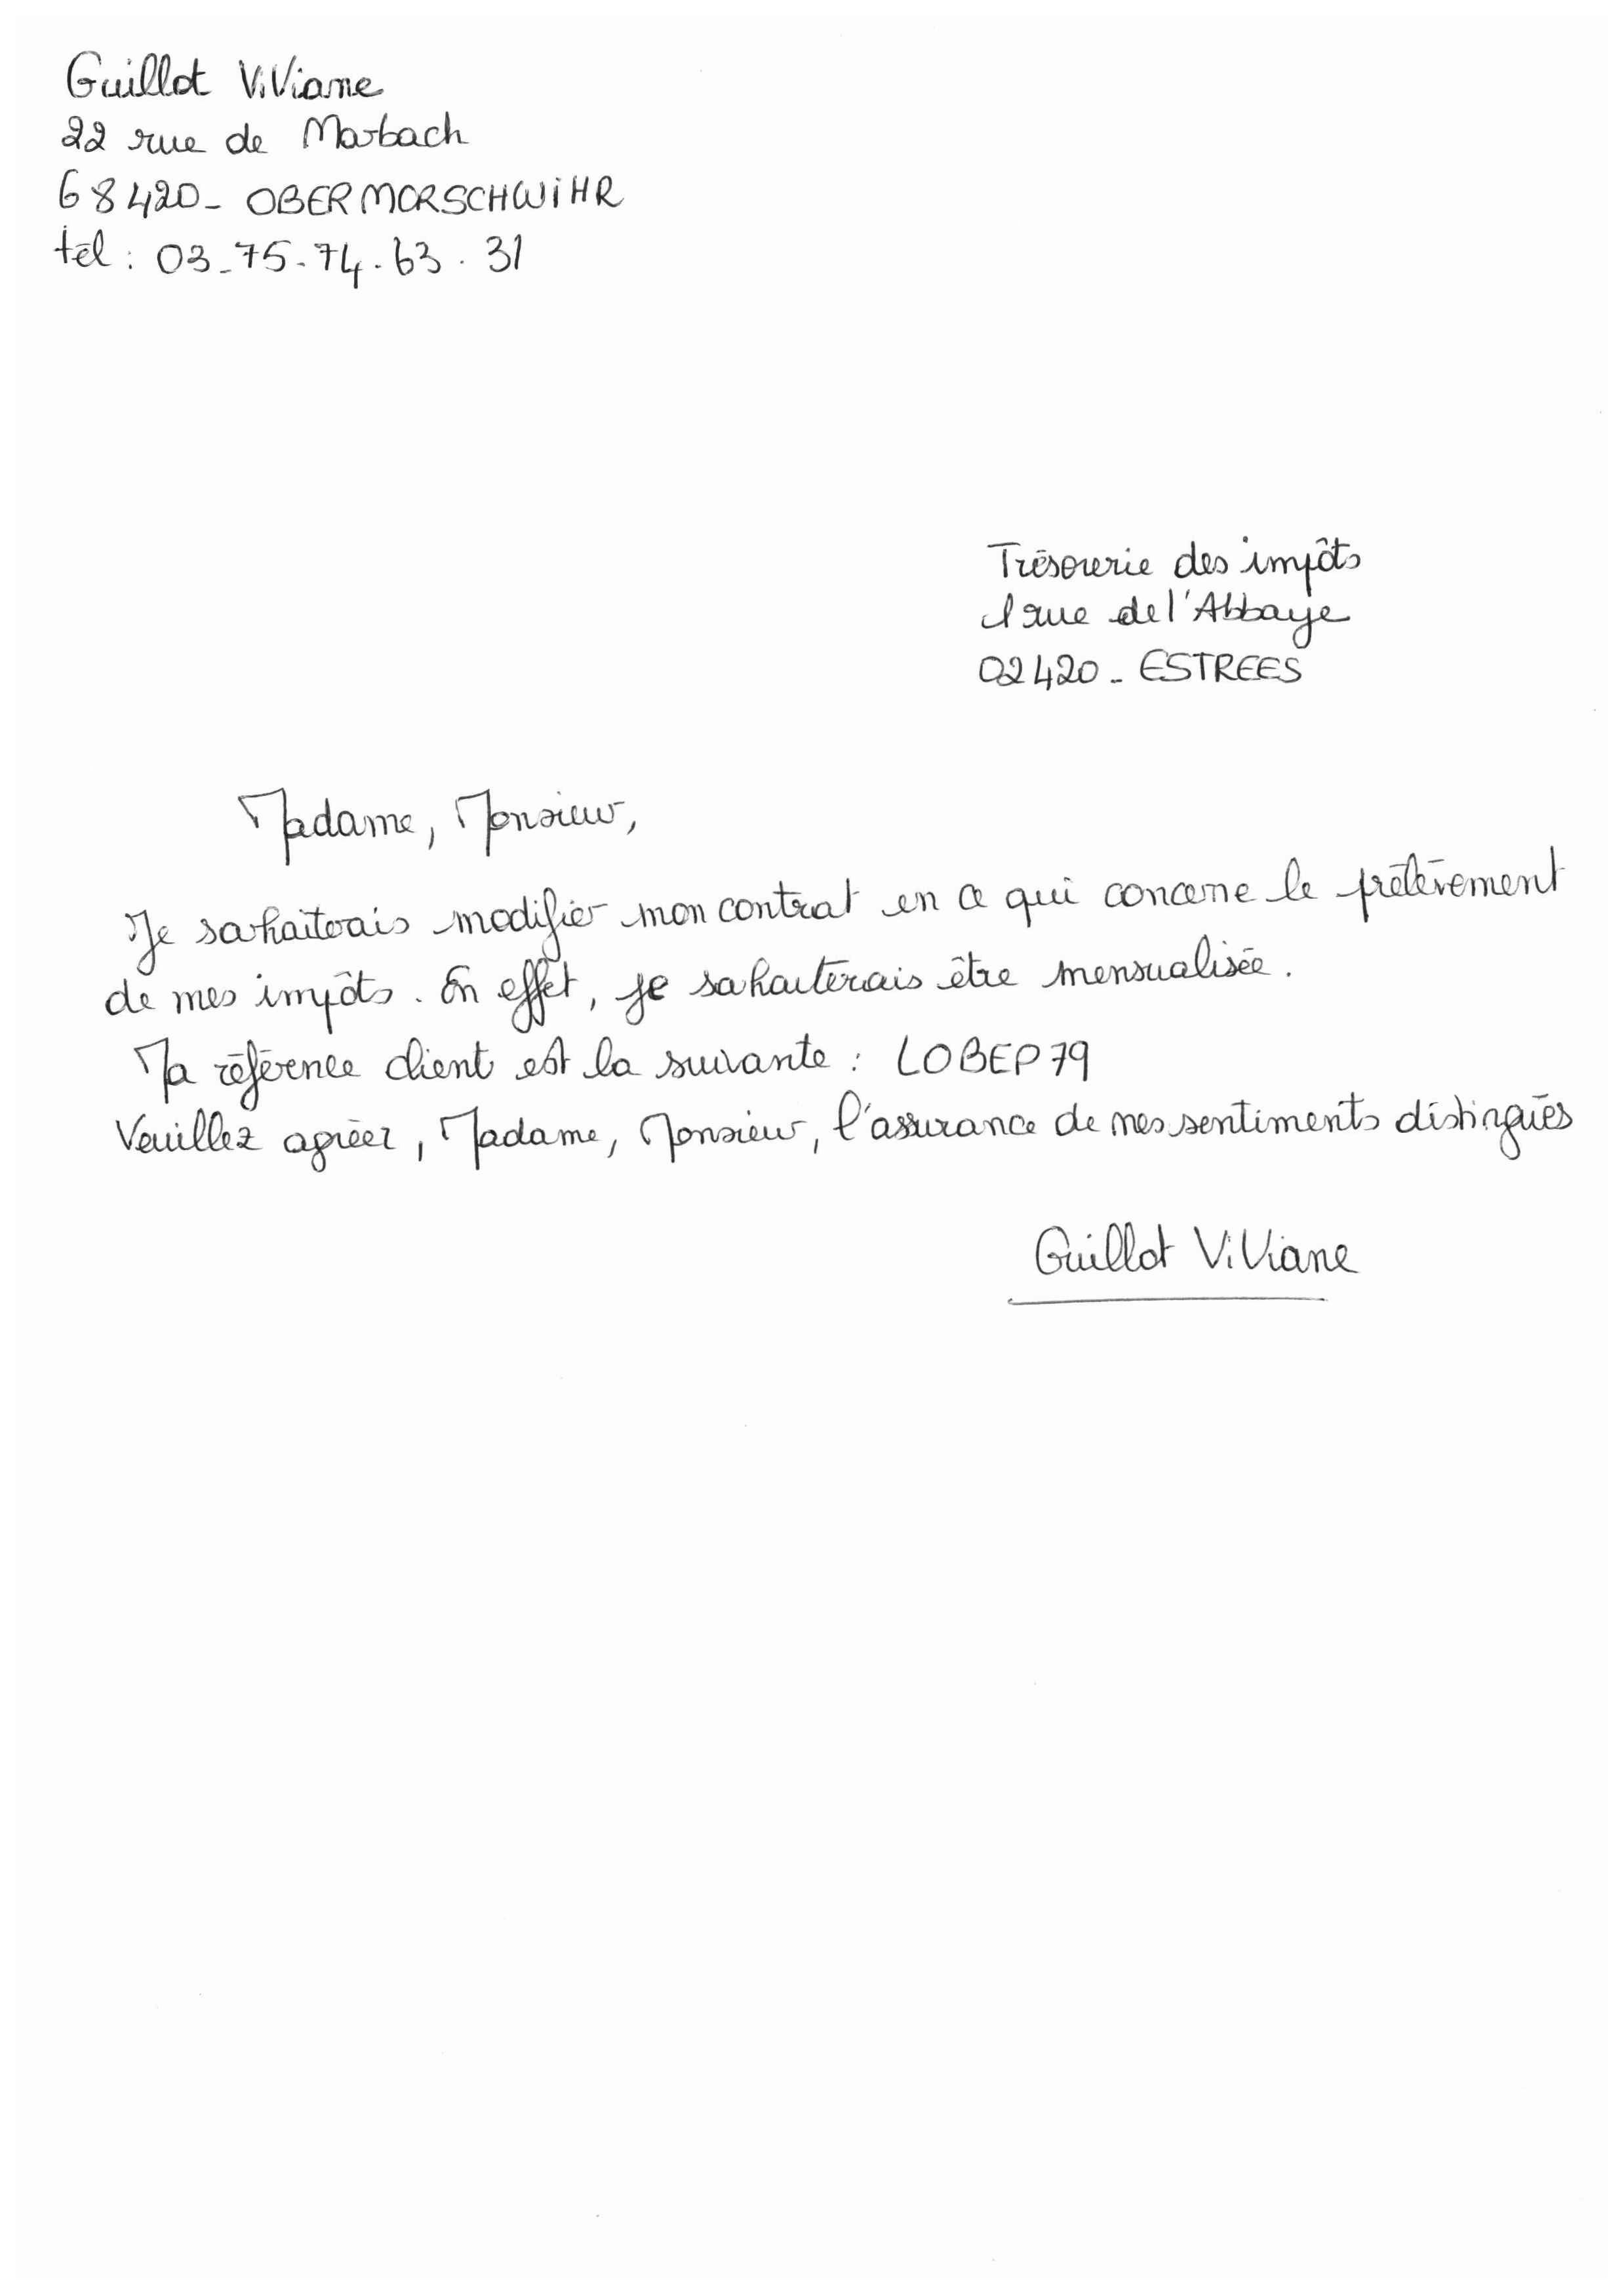 Guillot ViViane
22 rue de Marbach
68420 - OBERMORSCHWiHR
tél : 03-75-74-63.31
Trésorerie des impôts
1 rue de l'Abbaye
02420 - ESTREES
Madame, Monsieur,
Je souhaiterais modifier mon contrat en ce qui concerne le prélèvement
de mes impôts. En effet, je souhaiterais être mensualisée.
Ma référence client est la suivante : LOBEP79
Veuillez agréer, Madame, Monsieur, l'assurance de mes sentiments distingués
Guillot ViViane